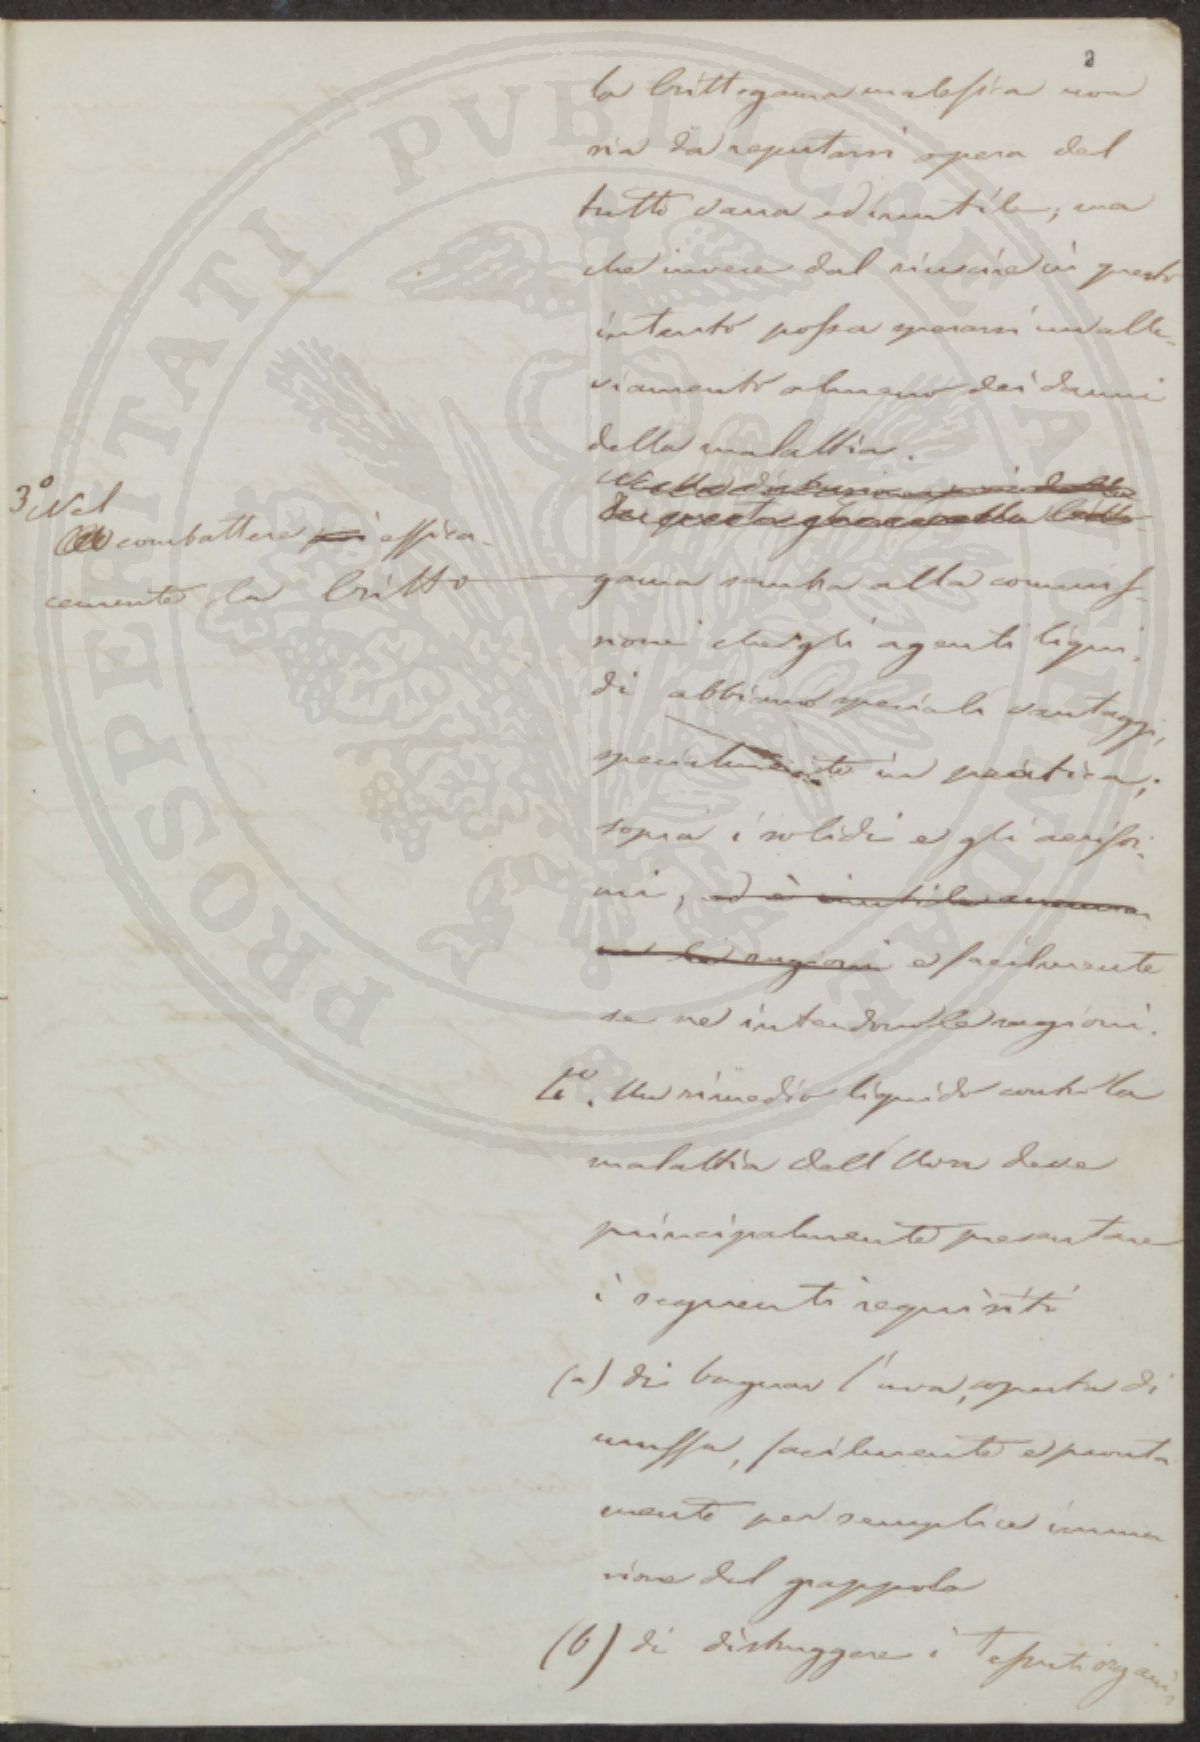 2
la crittogama malefica non
sia da reputarsi opera del
tutto vana ed inutile; ma
che invece dal riuscire in questo
intento possa sperarsi un alle-
viamento almeno dei danni
della malattia.
3° Nel
combattere più effica-
cemente la critto
gama sembra alla commis-
sione che gli agenti liqui-
di abbiano speciali vantaggi,
specialmente in pratica,
sopra i solidi e gli aerifor-
mi, ed è inutile enumera-
re le ragioni e facilmente
se ne intendono le ragioni.
4°. Un rimedio liquido contro la
malattia dell'Uva deve
principalmente presentare
i seguenti requisiti
(a) di bagnar l'uva, coperta di
muffa, facilmente e pronta
mente per semplice immer
sione del grappolo
(b) di distruggere i Tessuti organi-
PROSPERITATI PUBLICAE AUGENDAE